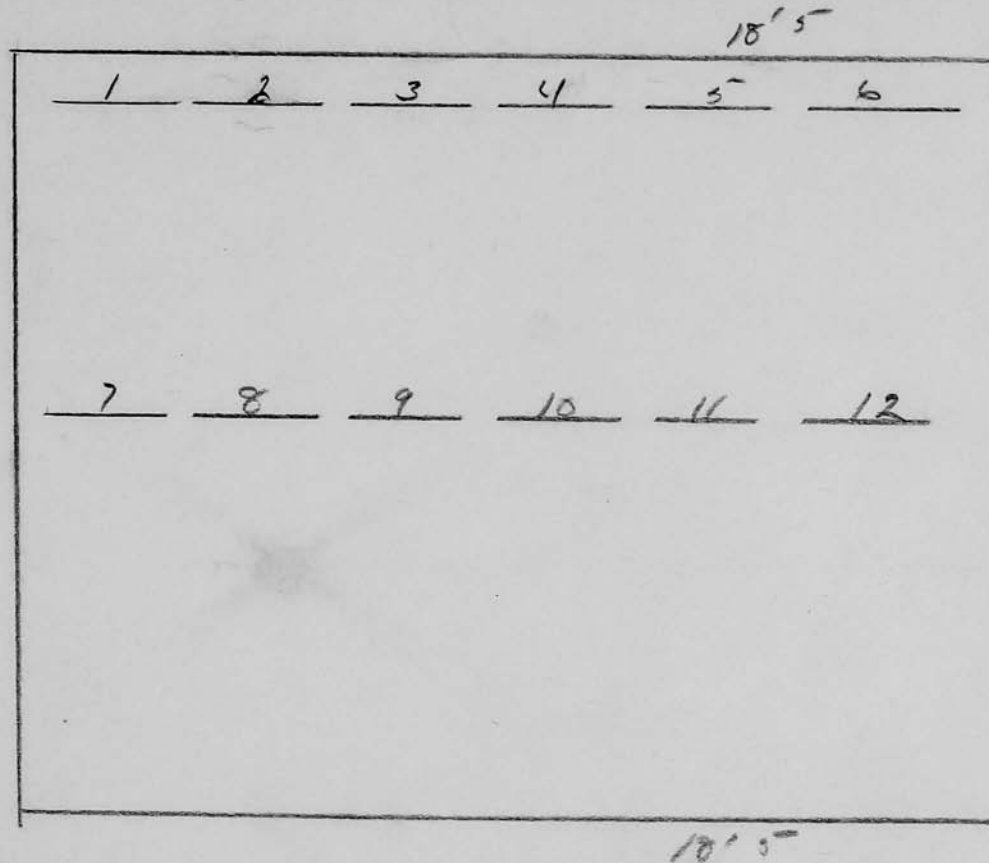 18' 5
1 2 3 4 5 6
7 8 9 10 11 12
18' 5